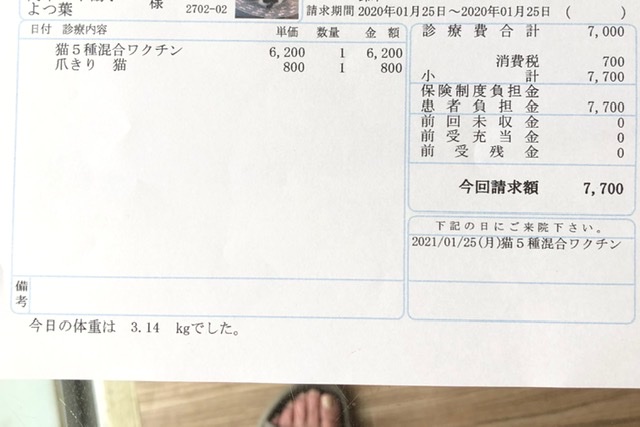 よつ葉 様 2702-02
請求期間 2020年01月25日～2020年01月25日 ( )
日付 診療内容 単価 数量 金額
猫5種混合ワクチン 6,200 1 6,200
爪きり 猫 800 1 800
診療費合計 7,000
消費税 700
小計 7,700
保険制度負担金
患者負担金 7,700
前回未収金 0
前受充当金 0
前受残金 0
今回請求額 7,700
下記の日にご来院下さい。
2021/01/25(月)猫5種混合ワクチン
備考
今日の体重は 3.14 kgでした。